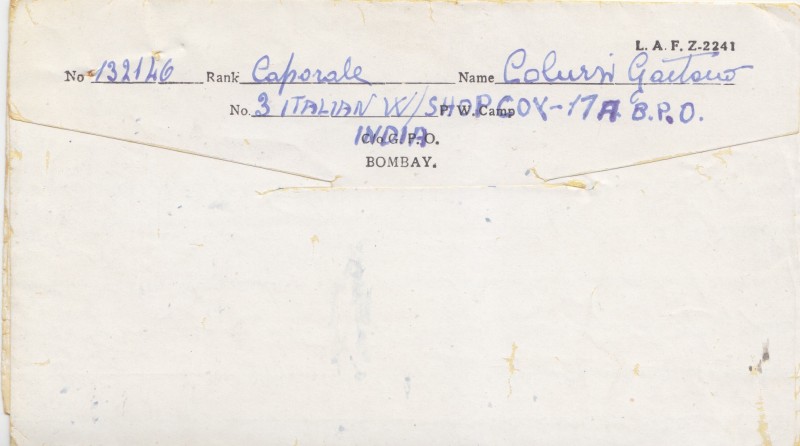 L. A. F. Z-2241
No 132146 Rank Caporale Name Colursi Gaetano
No. 3 ITALIAN W/SHOP COY-17A B.P.O. P. W. Camp
INDIA
C/o G. P. O.
BOMBAY.